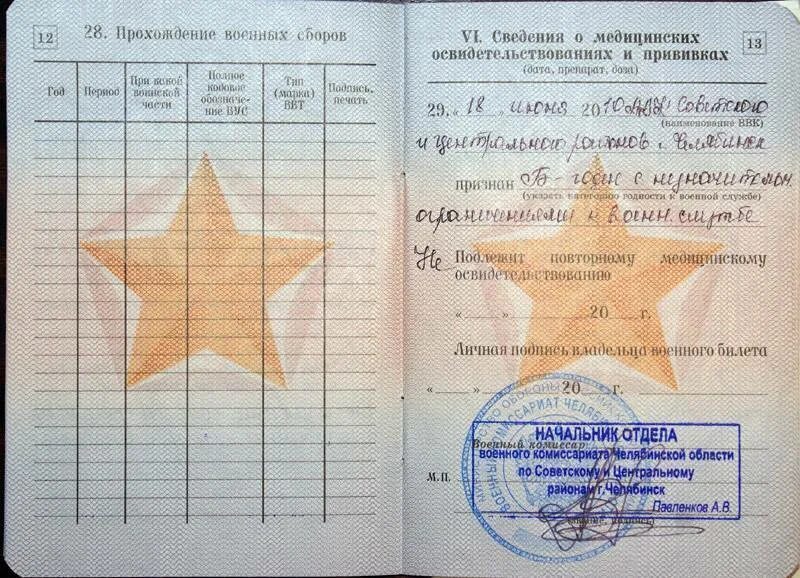 12
28. Прохождение военных сборов
Год
Период
При какой
воинской
части
Полное
кодовое
обозначе-
ние ВУС
Тип
(марка)
ВВТ
Подпись,
печать
VI. Сведения о медицинских
освидетельствованиях и прививках
13
(дата, препарат, доза)
29. „ 18 „ июня 2010 Советского
(наименование ВВК)
и Центрального районов г. Челябинск
признан „Б - годен с незначительн.
(указать категорию годности к военной службе)
ограничениями к воен. службе
Не Подлежит повторному медицинскому
освидетельствованию
„ „ 20 г.
Личная подпись владельца военного билета
„ „ 20 г.
Военный комиссар
НАЧАЛЬНИК ОТДЕЛА
военного комиссариата Челябинской области
по Советскому и Центральному
районам г.Челябинск
Павленков А.В.
М.П.